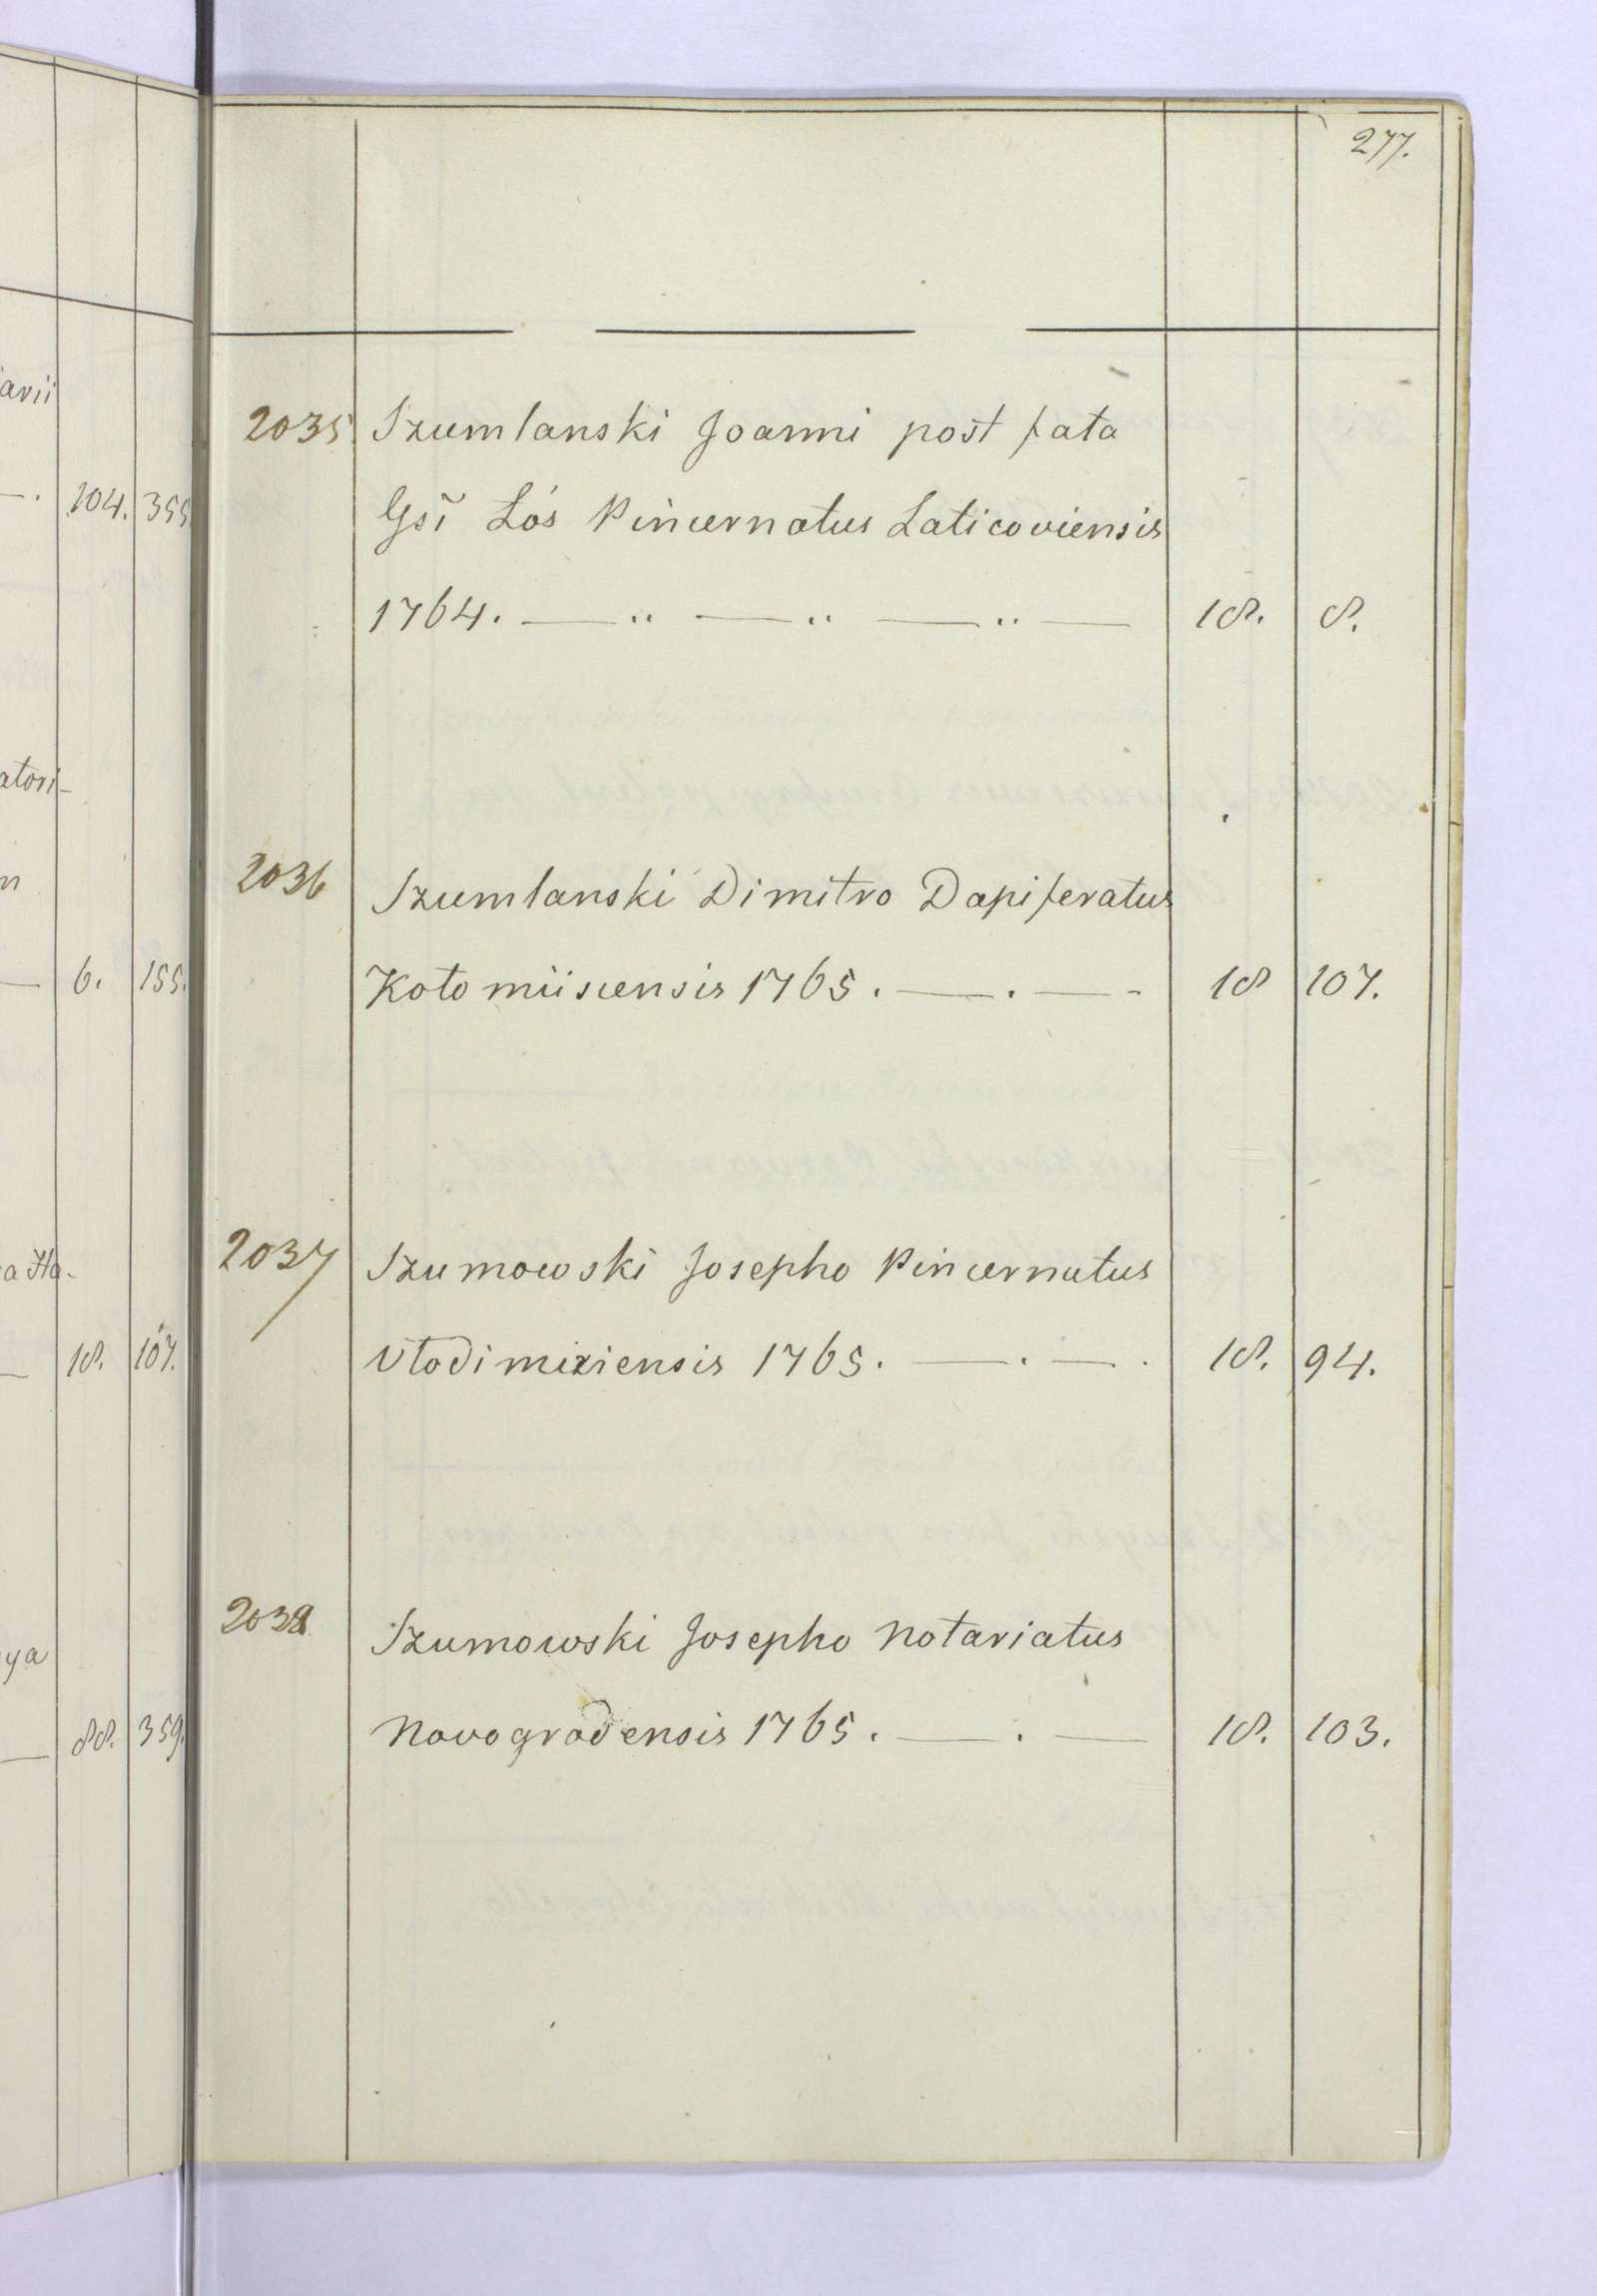 277.
2035 Szumlanski Joanni post fata
Gsi Łós Pincernatus Laticoviensis
1764. — .. — .. — .. — 18. 8.
2036 Szumlanski Dimitro Dapiferatus
Kołomiiscensis 1765. — . — - 18 107.
2037 Szumowski Josepho Pincernatus
Vlodimiriensis 1765. — . — . 18. 94.
2038 Szumowski Josepho Notariatus
Novogradensis 1765. — . — 18. 103.
arii
— . 104. 355
atori-
n
— 6. 155.
a Ha-
— 18. 107.
ya
— 88. 359.